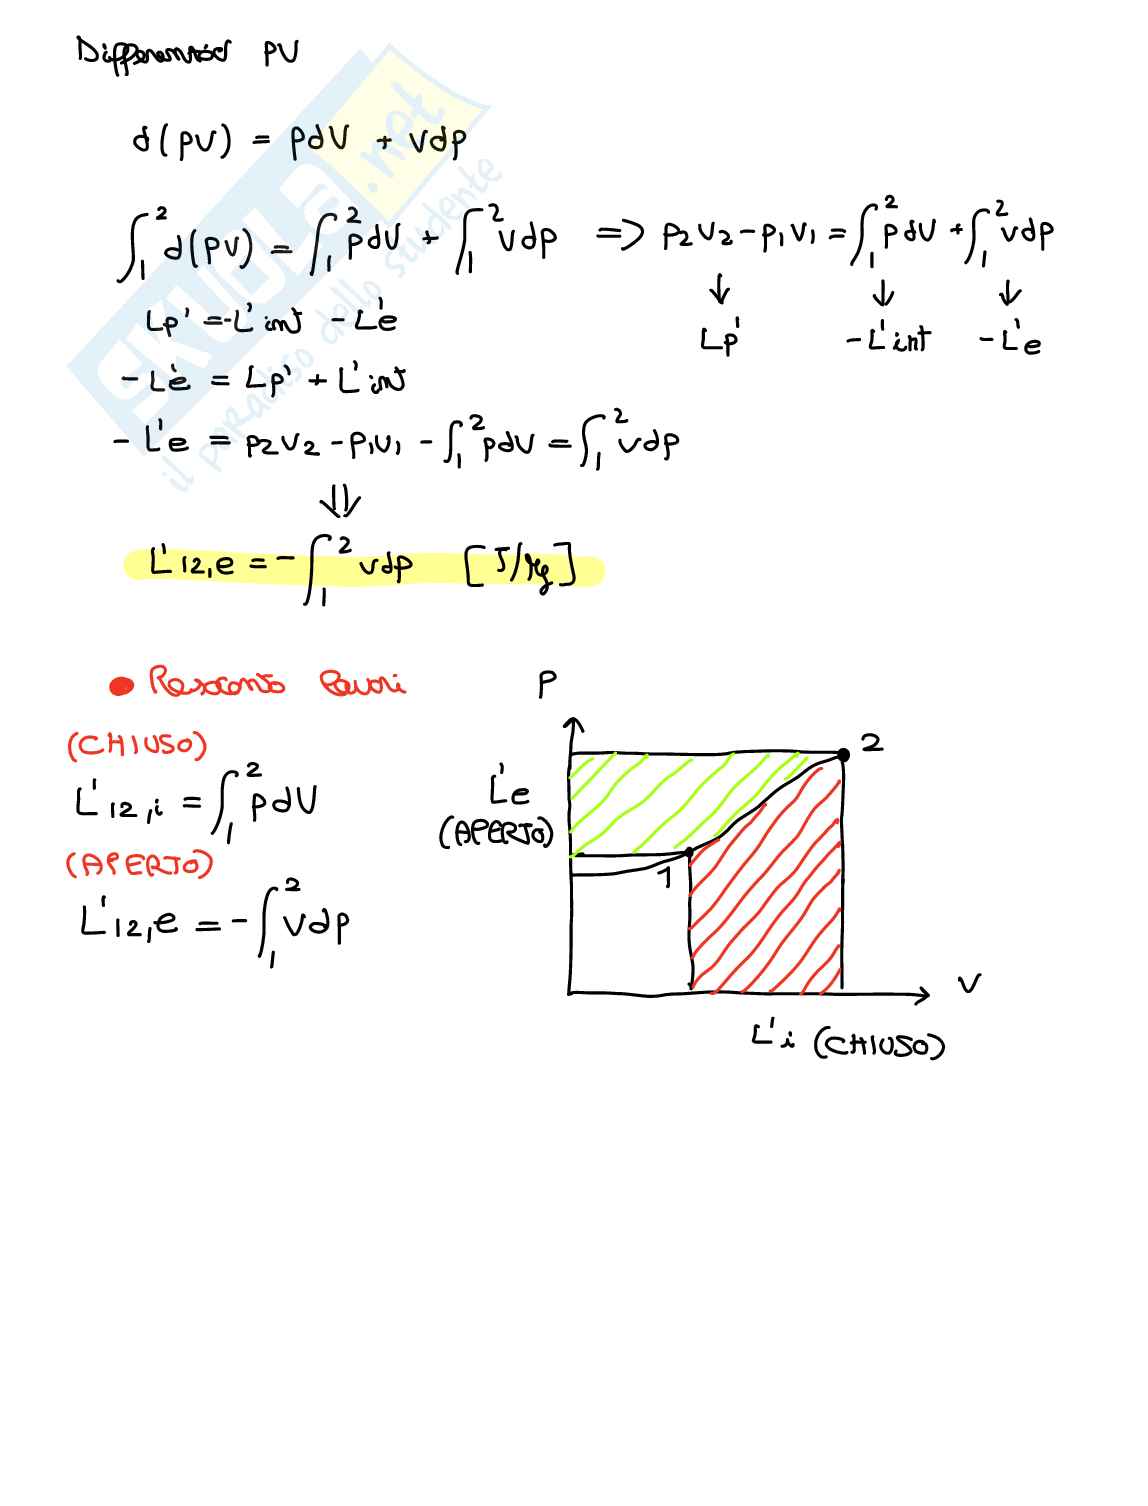 Differenzio PV
d(pv) = pdV + Vdp
∫₁² d(pv) = ∫₁² pdV + ∫₁² Vdp => p₂v₂ - p₁v₁ = ∫₁² pdV + ∫₁² vdp
↓ ↓ ↓
Lp' -L'int -L'e
Lp' = -L'int - L'e
-L'e = Lp' + L'int
-L'e = p₂v₂ - p₁v₁ - ∫₁² pdV = ∫₁² vdp
⇓
L'12,e = - ∫₁² vdp [J/kg]
• Resoconto lavori
(CHIUSO)
L'12,i = ∫₁² pdV
(APERTO)
L'12,e = - ∫₁² Vdp
P
2
L'e
(APERTO)
1
V
L'i (CHIUSO)
SKUOLA.net
il paradiso dello studente